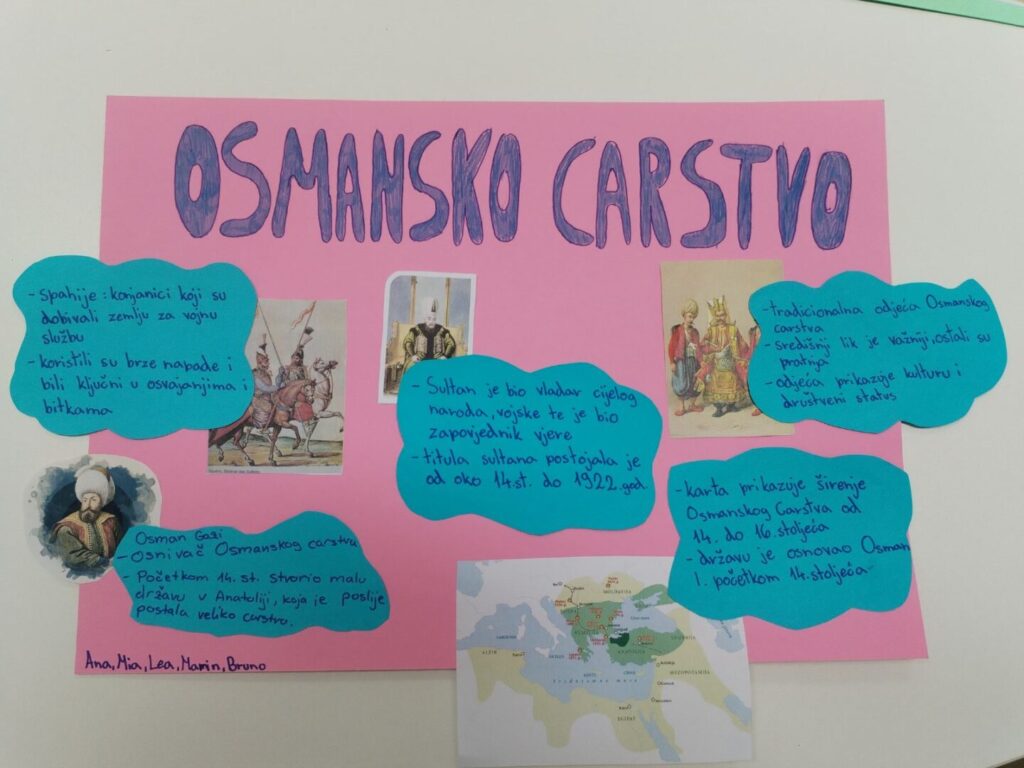 OSMANSKO CARSTVO
- Spahije : konjanici koji su
dobivali zemlju za vojnu
službu
- koristili su brze napade i
bili ključni u osvajanjima i
bitkama
- Sultan je bio vladar cijelog
naroda, vojske te je bio
zapovjednik vjere
- titula sultana postojala je
od oko 14.st. do 1922.god.
- tradicionalna odjeća Osmanskog
carstva
- središnji lik je važniji, ostali su
pratnja
- odjeća prikazuje kulturu i
društveni status
Osman Gazi
- Osnivač Osmanskog carstva
- Početkom 14. st. stvorio malu
državu u Anatoliji, koja je poslije
postala veliko carstvo.
- karta prikazuje širenje
Osmanskog Carstva od
14. do 16. stoljeća
- državu je osnovao Osman
1. početkom 14. stoljeća
Ana, Mia, Lea, Marin, Bruno
MOLDAVIJA
Crno more
ANATOLIJA
ALŽIR
MEZOPOTAMIJA
Sredozemno more
EGIPAT